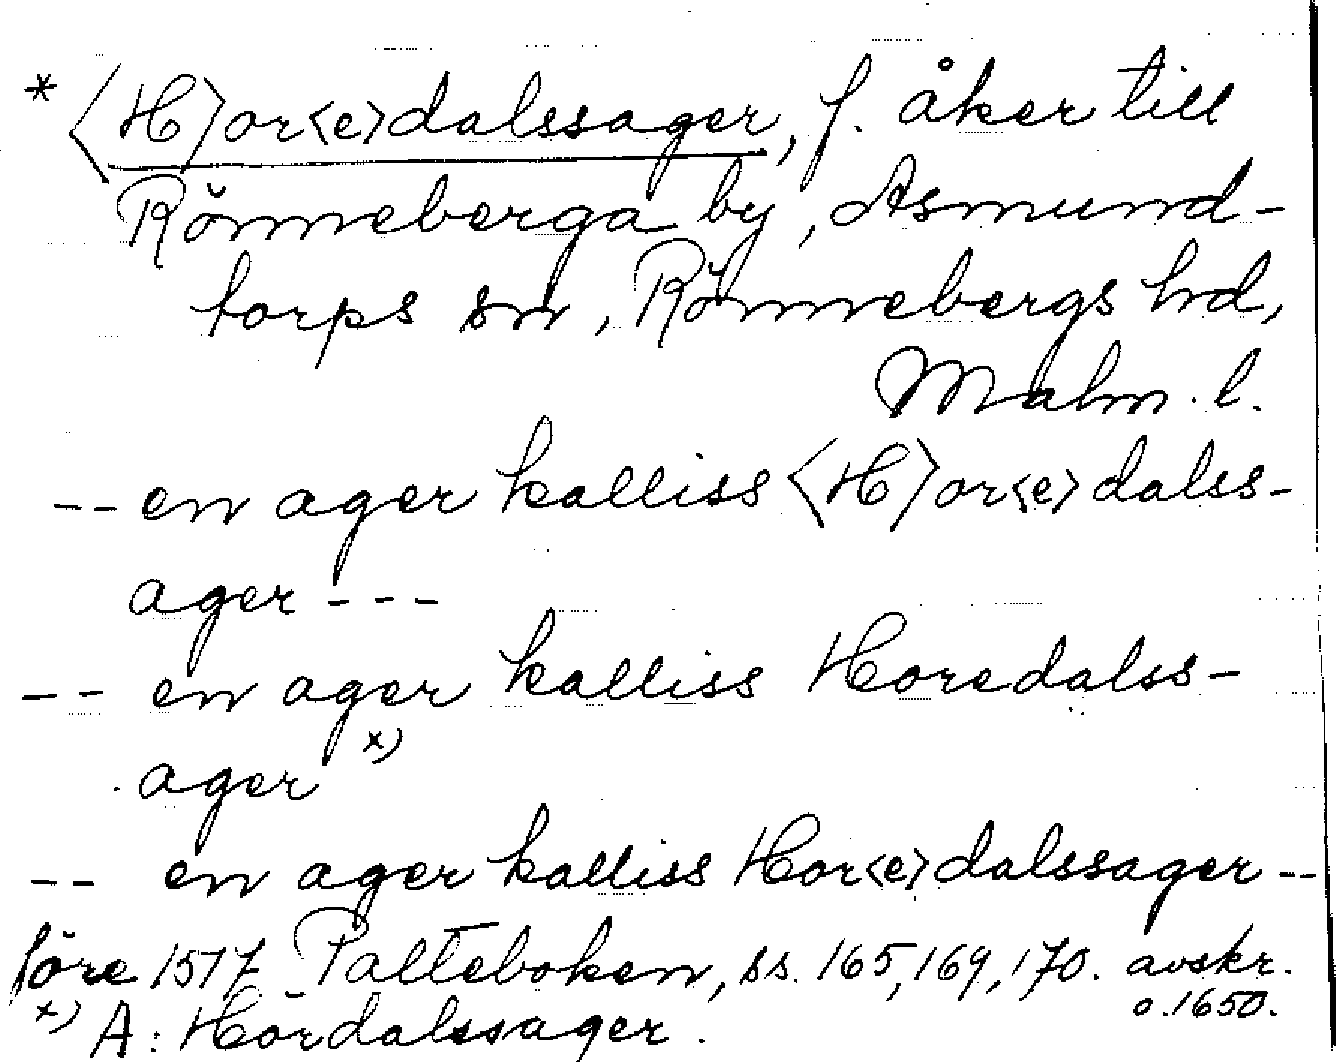 * <H>or<e>dalssager, f. åker till
Rönneberga by, Asmund-
torps sn, Rönnebergs hd,
Malm. l.
-- en ager kalliss <H>or<e>dalss-
ager ---
-- en ager kalliss Horedalss-
ager x)
-- en ager kalliss Hor<e>dalssager --
före 1517 Palteboken, ss. 165, 169, 170. avskr.
o. 1650.
x) A: Hordalssager.